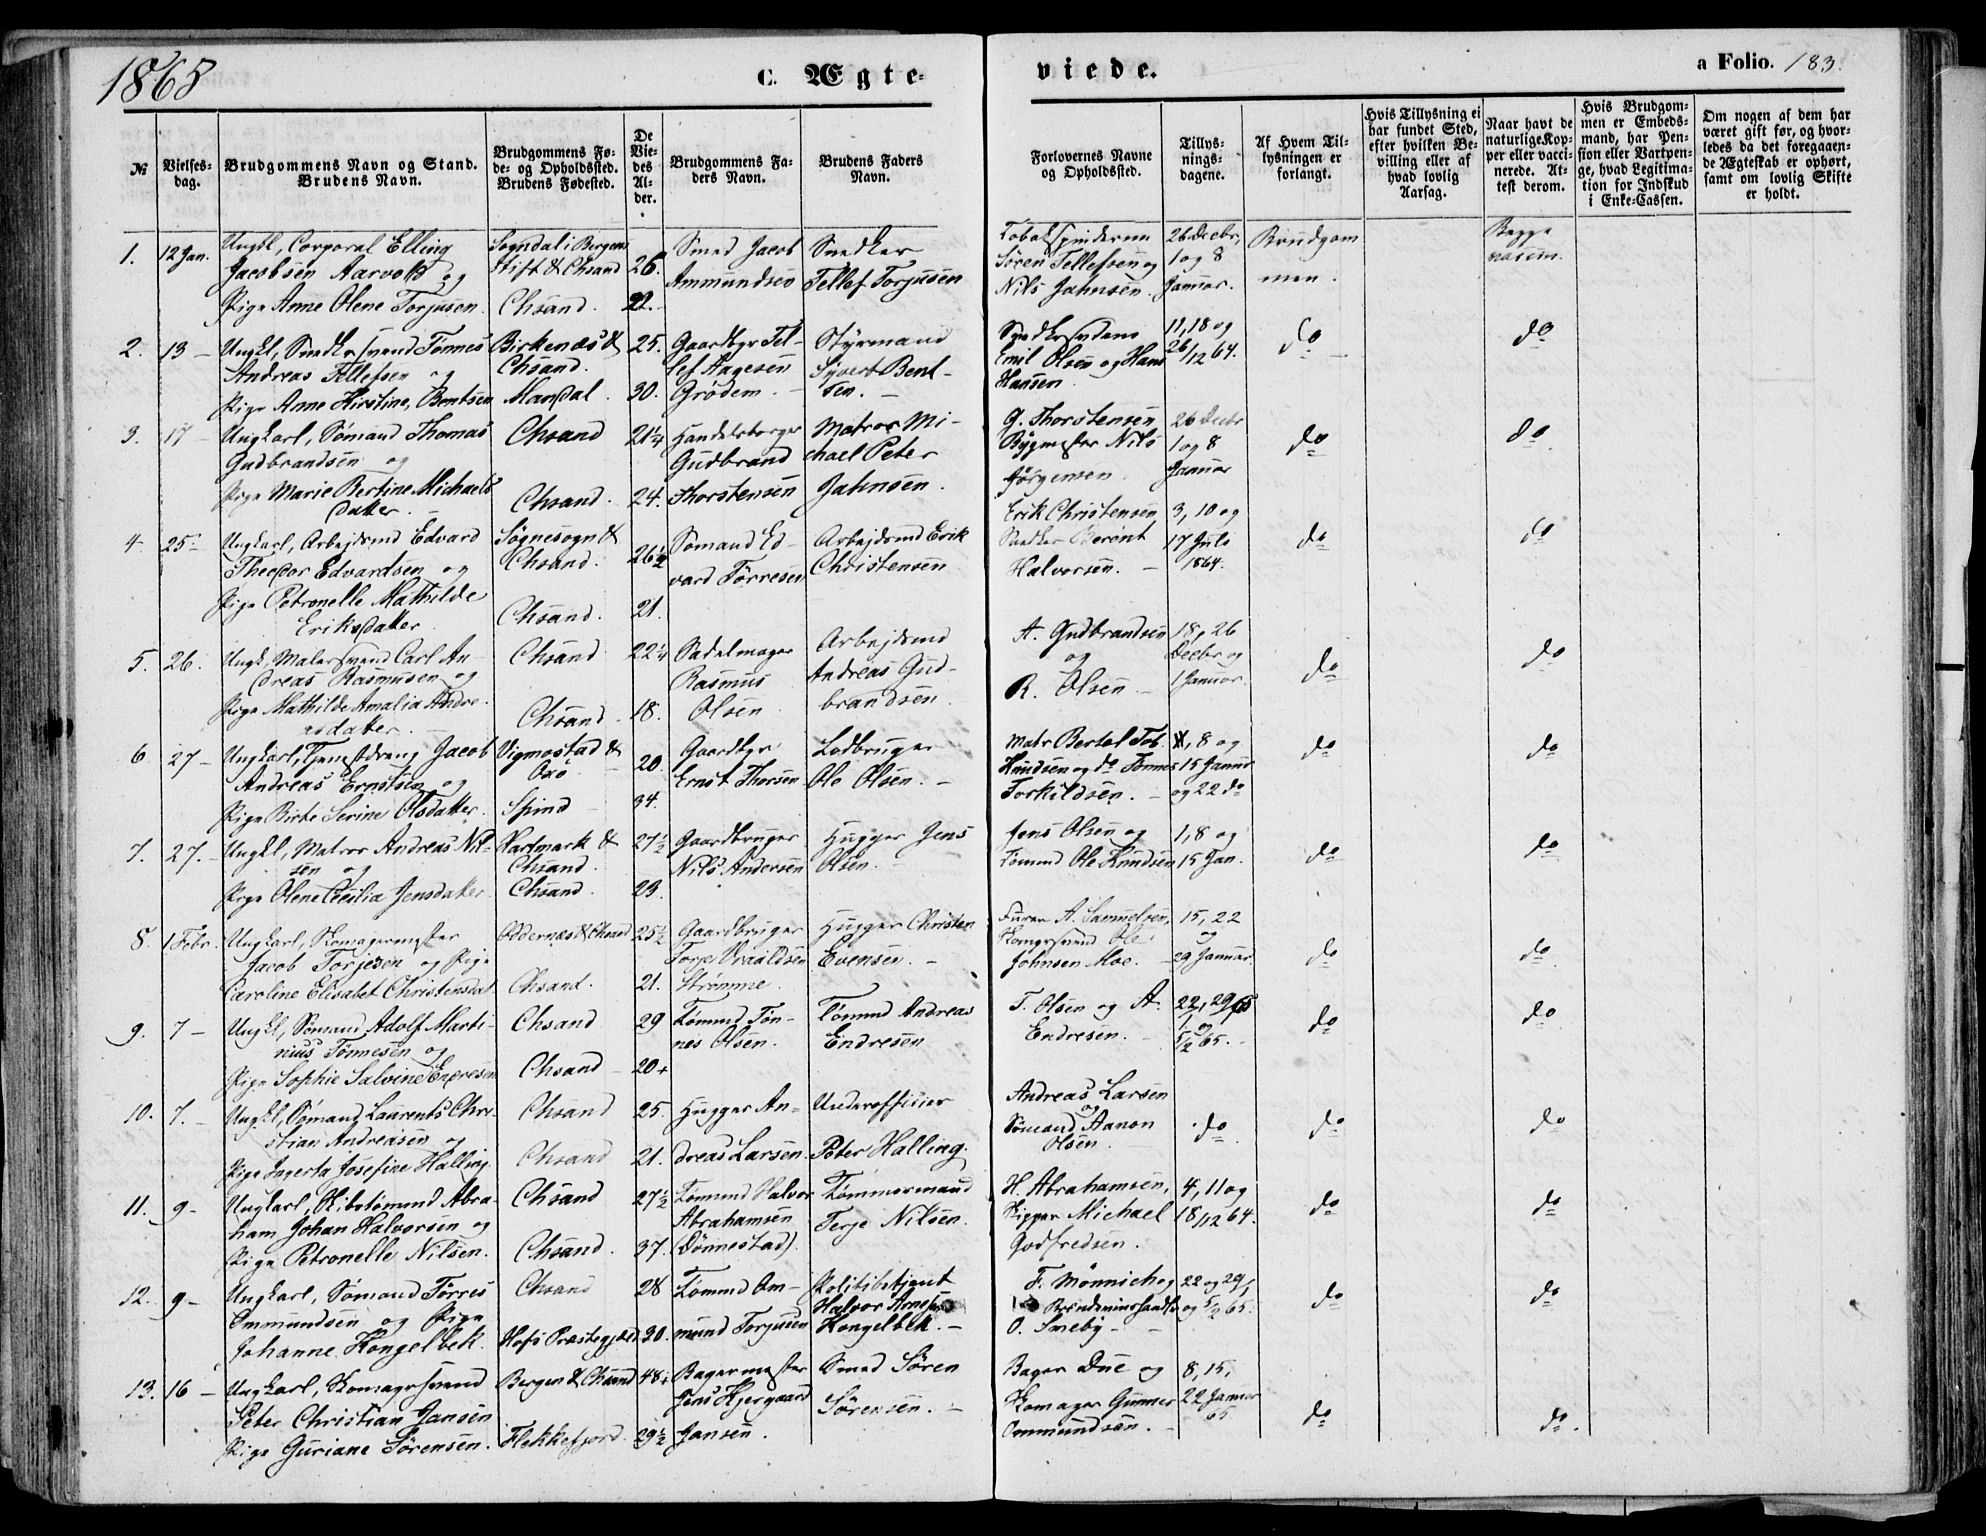 1865
C. Ægte-
viede.
a Folio. 183.
№
Vielses-
dag.
Brudgommens Navn og Stand.
Brudens Navn.
Brudgommens Fø-
de- og Opholdssted.
Brudens Fødested.
De
Vie-
des
Al-
der.
Brudgommens Fa-
ders Navn.
Brudens Faders
Navn.
Forlovernes Navne
og Opholdssted.
Tillys-
nings-
dagene.
Af Hvem Til-
lysningen er
forlangt.
Hvis Tillysning ei
har fundet Sted,
efter hvilken Be-
villing eller af
hvad lovlig
Aarsag.
Naar havt de
naturlige Kop-
per eller vacci-
nerede. At-
test derom.
Hvis Brudgom-
men er Embeds-
mand, har Pen-
sion eller Vartpen-
ge, hvad Legitima-
tion for Indskud
i Enke-Cassen.
Om nogen af dem har
været gift før, og hvor-
ledes da det foregaaen-
de Ægteskab er ophørt,
samt om lovlig Skifte
er holdt.
1. 12 Jan.
Ungkl, Corporal Elling
Jacobsen Aarvold og
Pige Anne Olene Torjusen.
Sogndal i Bergens
Stift & Chsand
Chsand.
26.
22.
Smed Jacob
Ammundsen
Snedker
Tellef Torjusen
Tobakspinderne
Søren Tellefsen og
Nils Jahnsen.
26 Decbr,
1 og 8
Januar.
Brudgom
men.
Begge
vaccin.
2. 13 —
Ungkl, Snedkersvend Tønnes
Andreas Tellefsen og
Pige Anne Kirstine Bentsen
Birkenæs &
Chsand.
Mandal.
25.
30.
Gaardbgr Tel-
lef Aagesen
Grødem. —
Styrmand
Syvert Bent-
sen. —
Snedkersvendene
Emil Olsen og Hans
Hansen
11, 18 og
26/12 64.
do
do
3. 17 —
Ungkarl, Sømand Thomas
Gudbrandsen og
Pige Marie Bertine Michaels
datter. —
Chsand
Chsand.
21 1/4
24.
Handelsborger
Gudbrand
Thorstensen
Matros Mi-
chael Peter
Jahnsen.
G. Thorstensen
Bygmester Nils
Jørgensen
26 Decbr
1 og 8
Januar
do
do
4. 25 —
Ungkarl, Arbejdsmd Edvard
Theodor Edvardsen og
Pige Petronelle Mathilde
Eriksdatter
Søgnesogn &
Chsand.
Chsand.
26 1/2
21.
Sømand Ed-
vard Tørresen
Arbejdsmd Erik
Christensen
Erik Christensen
Snedker Berent
Halvorsen. —
3, 10 og
17 Juli
1864.
do
do
5. 26.
Ungk, Malersvend Carl An-
dreas Rasmusen og
Pige Mathilde Amalia Andre-
asdatter. —
Chsand
Chsand
22 1/4
18.
Sadelmager
Rasmus
Olsen
Arbejdsmd
Andreas Gud-
brandsen.
A. Gudbrandsen
og
R. Olsen —
18, 26
Decbr og
1 Januar.
do
do
6 27 —
Ungkarl, Tjenstdreng Jacob
Andreas Ernstsen og
Pige Birte Serine Olsdatter.
Vigmostad &
Oxø. —
Spind —
20.
34.
Gaardbgr
Ernst Thorsen
Lodbruger
Ole Olsen. —
Matr Bertel Tob.
Knudsen og do Tønnes
Torkildsen. —
1, 8 og
15 Januar
og 22 do
do
do
7. 27. —
Ungkl, Matros Andreas Nil-
sen og
Pige Olene Cecilia Jensdatter
Hartmark &
Chsand.
Chsand.
27 1/2
23.
Gaardbruger
Nils Andersen
Hugger Jens
Olsen. —
Jens Olsen og
Tømmd Ole Knudsen
1, 8 og
15 Jan.
do
do
8. 1 Febr.
Ungkarl, Skomagermester
Jacob Torjesen og Pige
Caroline Elisabet Christensdat.
Oddernæs & Chsand
Chsand.
25 1/2
21.
Gaardbruger
Torje Vraaldsen
Strømme.
Hugger Christen
Evensen. —
Furer A. Samuelsen,
Skomgrsvend Ole
Johnsen Moe. —
15, 22
og
29 Januar.
do
do
9. 7 —
Ungkl, Sømand Adolf Marti-
nius Tønnesen og
Pige Sophie Salvine Endresen
Chsand
Chsand
29
20+
Tømmd Tøn-
nes Olsen.
Tømmd Andreas
Endresen
T. Olsen og A.
Endresen. —
22, 29/1 65
og
5/2 65. —
do
do
10. 7. —
Ungkl, Sømand Laurents Chri-
stian Andreasen og
Pige Ingerta Josefine Halling.
Chsand
Chsand
25.
21.
Hugger An-
dreas Larsen.
Underofficier
Peter Halling.
Andreas Larsen
og
Sømand Aanon
Olsen.
do
do
do
11. 9 —
Ungkarl, Skibstømmd Abra-
ham Johan Halvorsen og
Pige Petronelle Nilsen.
Chsand
Chsand.
27 1/2
37.
Tømmd Halvor
Abrahamsen
(Dønnestad)
Tømmermand
Terje Nilsen.
H. Abrahamsen,
Skipper Michael
Godfredsen.
4, 11 og
18/12 64.
do
do
12. 9 —
Ungkarl, Sømand Tørres
Ommundsen og Pige
Johanne Kongelbek.
Chsand
Hofs Præstegjæld
28
30.
Tømmd Om-
mund Torjusen
Politibetjent
Halvor Arnesen
Kongelbek. —
F. Mønnich og
O. Smeby — —
22 og 29/1
og 5/2 65.
do
do
13. 16 —
Ungkarl, Skomagersvend
Peter Christian Jansen
Pige Guriane Sørensen.
Bergen & Chsand
Flekkefjord.
48+
29 1/2
Bagermester
Jens Hjergaard
Jansen.
Smed Søren
Sørensen. —
Bager Due og
Skomager Gunner
Ommundsen. —
8, 15,
22 Januar
65
do
do.